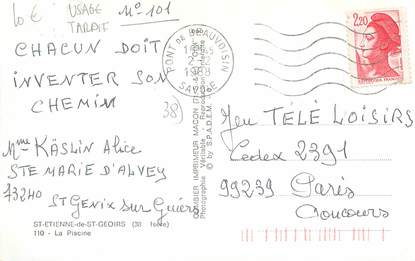 10€ USAGE N°101
TARDIF
CHACUN DOIT
INVENTER SON
CHEMIN
38
Mme KÄSLIN Alice
STE MARIE D'ALVEY
73240
ST GENIX sur Guiers
ST-ETIENNE-de-ST-GEOIRS (38 Isère)
110 - La Piscine
COMBIER IMPRIMEUR MACON
Photographie Véritable - Reproduction
© by S.P.A.D.E.M.
PONT DE BEAUVOISIN
SAVOIE
2,20
Jeu TÉLÉ LOISIRS
Cedex 2391
99239 Paris
Concours